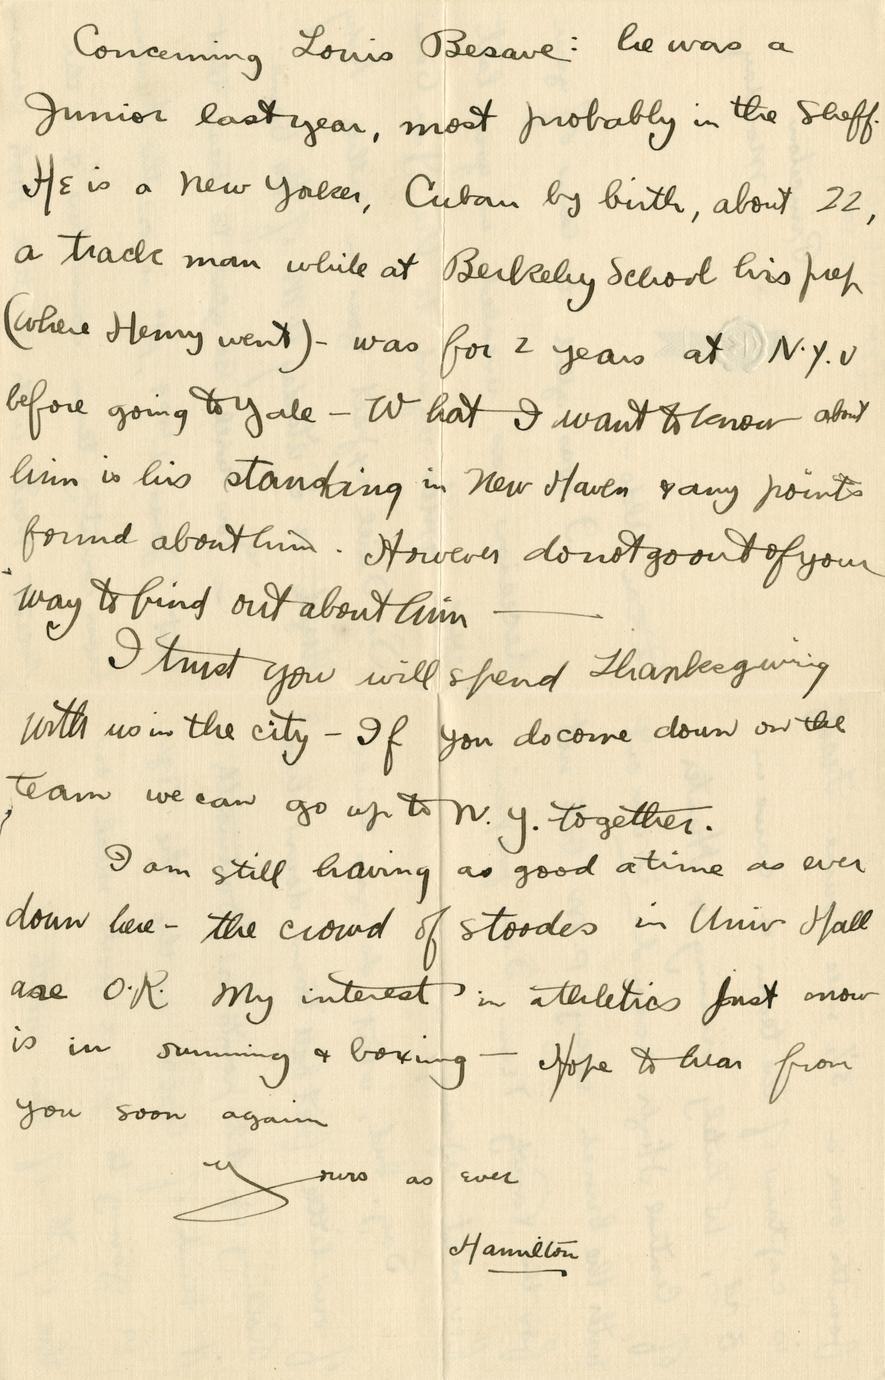 Concerning Louis Besave: he was a
Junior last year, most probably in the Sheff.
HE is a New Yorker, Cuban by birth, about 22,
a track man while at Berkeley School his prep
(where Henry went) - was for 2 years at N.Y.U
before going to Yale - What I want to know about
him is his standing in New Haven & any points
found about him. However do not go out of your
way to find out about him —
I trust you will spend Thanksgiving
with us in the city - If you do come down on the
team we can go up to N. Y. together.
I am still having as good a time as ever
down here - the crowd of stoodes in Univ Hall
are O.K. My interest in athletics just now
is in running & boxing — Hope to hear from
you soon again
Yours as ever
Hamilton